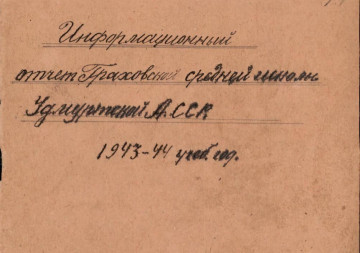 Информационный
отчет Граховской средней школы
Удмуртской А.ССР
1943-44 учеб. год.